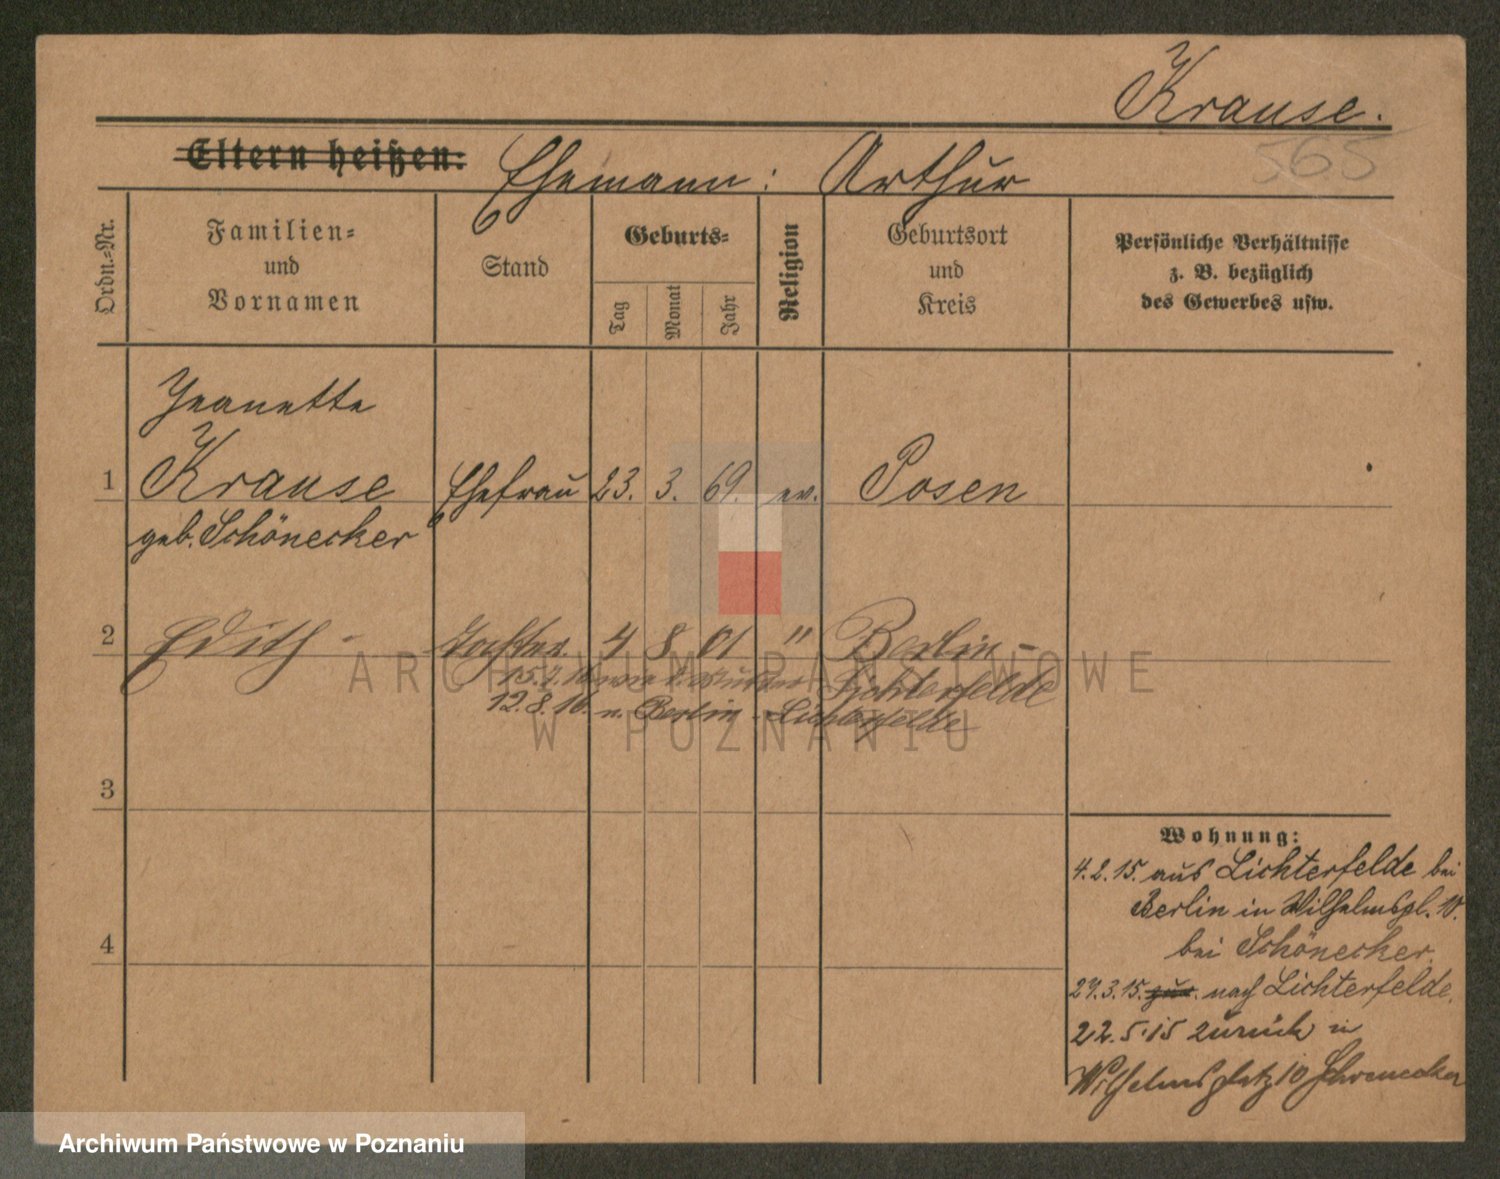 Krause.
565
Eltern heißen: Ehemann: Arthur
Ordn.-Nr.
Familien-
und
Vornamen
Stand
Geburts-
Tag
Monat
Jahr
Religion
Geburtsort
und
Kreis
Persönliche Verhältnisse
z. B. bezüglich
des Gewerbes usw.
Jeanette
1 Krause Ehefrau 23. 3. 69. ev. Posen
geb. Schönecker
2 Edith Tochter 4 8 01 " Berlin-
15. Lichterfelde
12.8.16. n. Berlin-Lichterfelde
3
4
Wohnung:
4.2.15. aus Lichterfelde bei
Berlin in Wilhelmspl. 10.
bei Schönecker.
29.3.15. zur. nach Lichterfelde.
22.5.15 zurück in
Wilhelmsplatz 10 Schönecker
ARCHIWUM PAŃSTWOWE
W POZNANIU
Archiwum Państwowe w Poznaniu